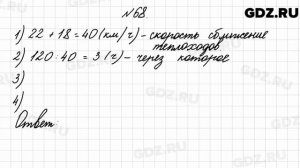 GDZ.RU
№68
1) 22 + 18 = 40 (км/ч) - скорость сближение
теплоходов
2) 120 : 40 = 3 (ч) - через которое
3)
4)
Ответ:
GDZ.RU